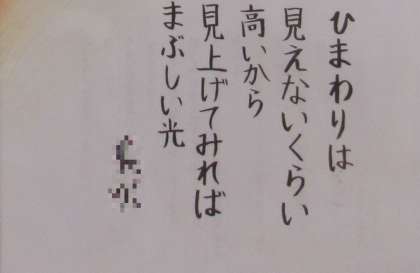 ひまわりは
見えないくらい
高いから
見上げてみれば
まぶしい光